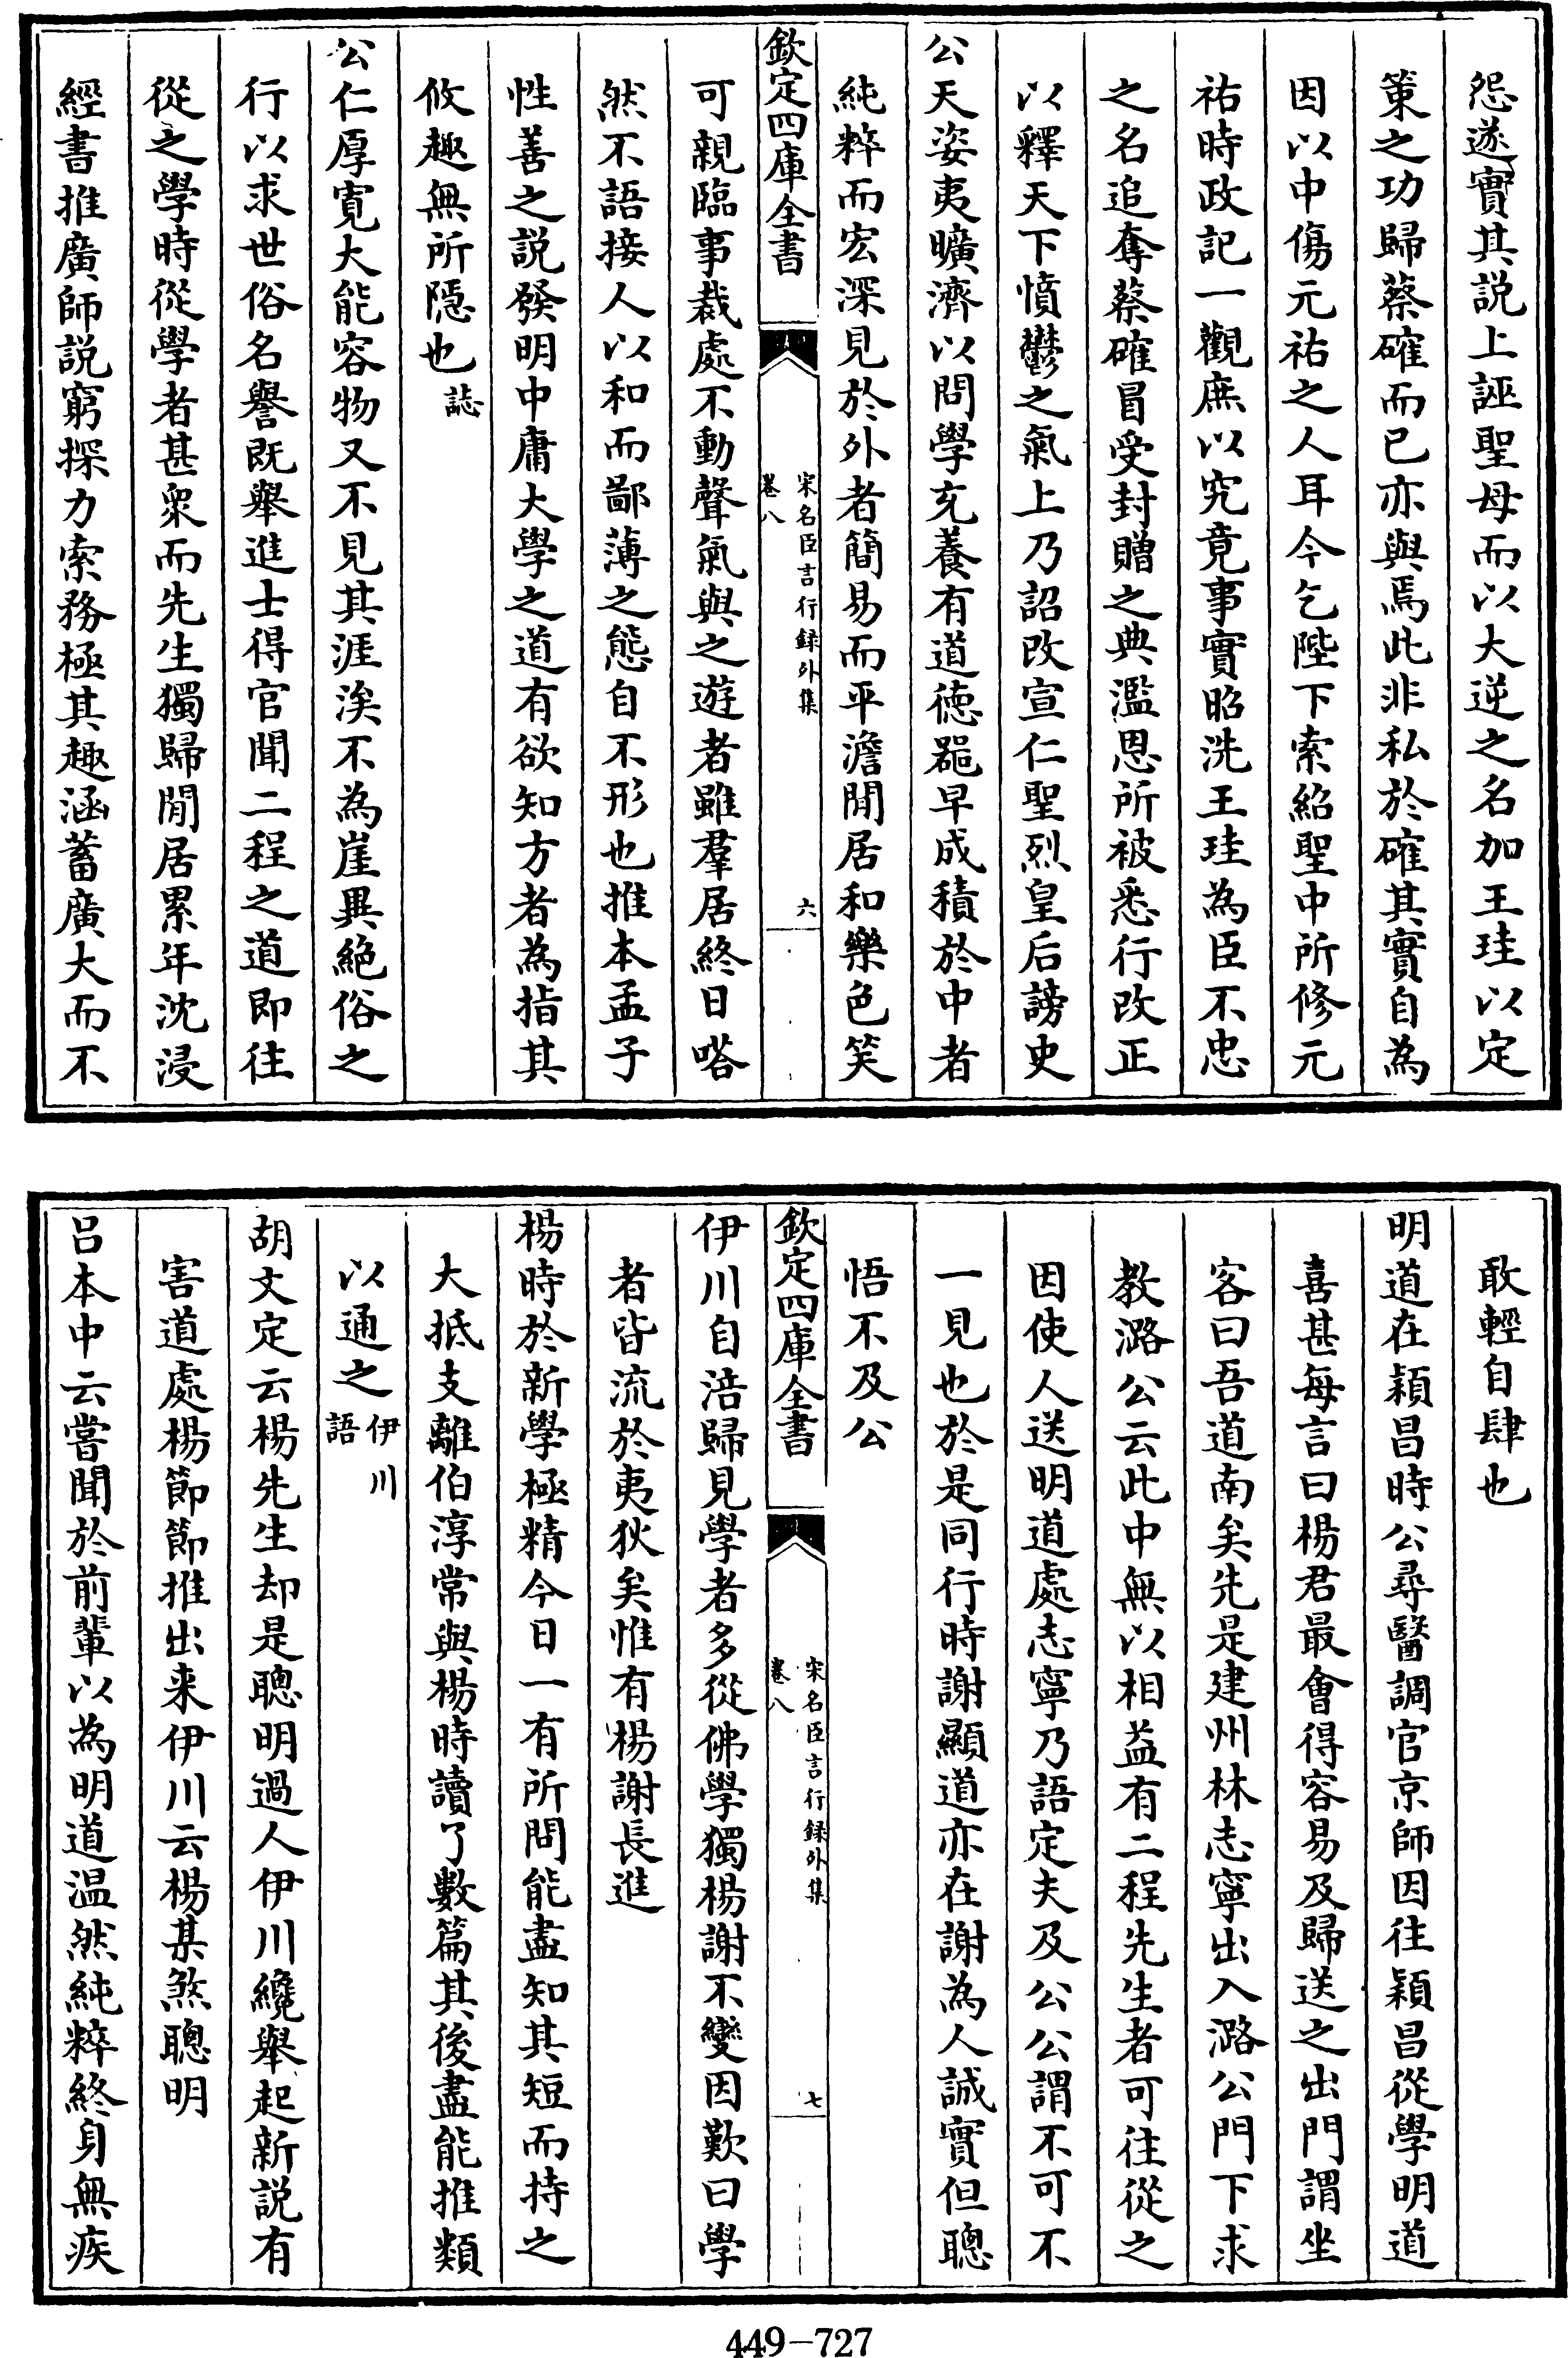 怨遂實其説上誣聖母而以大逆之名加王珪以定
策之功歸蔡確而已亦與焉此非私於確其實自為
因以中傷元祐之人耳今乞陛下索紹聖中所修元
祐時政記一觀庶以究竟事實昭洗王珪為臣不忠
之名追奪蔡確冒受封贈之典濫恩所被悉行改正
以釋天下憤鬱之氣上乃詔改宣仁聖烈皇后謗史
公天姿夷曠濟以問學充養有道徳噐早成積於中者
純粹而宏深見於外者簡易而平澹閒居和樂色笑
欽定四庫全書
宋名臣言行録外集
卷八
六
可親臨事裁處不動聲氣與之遊者雖羣居終日嗒
然不語接人以和而鄙薄之態自不形也推本孟子
性善之説發明中庸大學之道有欲知方者為指其
攸趣無所隠也誌
公仁厚寛大能容物又不見其涯涘不為崖異絶俗之
行以求世俗名譽既舉進士得官聞二程之道即往
從之學時從學者甚衆而先生獨歸閒居累年沈浸
經書推廣師説窮探力索務極其趣涵蓄廣大而不
敢輕自肆也
明道在頴昌時公尋醫調官京師因往頴昌從學明道
喜甚每言曰楊君最會得容易及歸送之出門謂坐
客曰吾道南矣先是建州林志寧出入潞公門下求
教潞公云此中無以相益有二程先生者可往從之
因使人送明道處志寧乃語定夫及公公謂不可不
一見也於是同行時謝顯道亦在謝為人誠實但聰
悟不及公
欽定四庫全書
宋名臣言行録外集
卷八
七
伊川自涪歸見學者多從佛學獨楊謝不變因歎曰學
者皆流於夷狄矣惟有楊謝長進
楊時於新學極精今日一有所問能盡知其短而持之
大抵支離伯淳常與楊時讀了數篇其後盡能推類
以通之伊川語
胡文定云楊先生却是聰明過人伊川纔舉起新説有
害道處楊節節推出来伊川云楊某煞聰明
吕本中云嘗聞於前輩以為明道温然純粹終身無疾
449-727